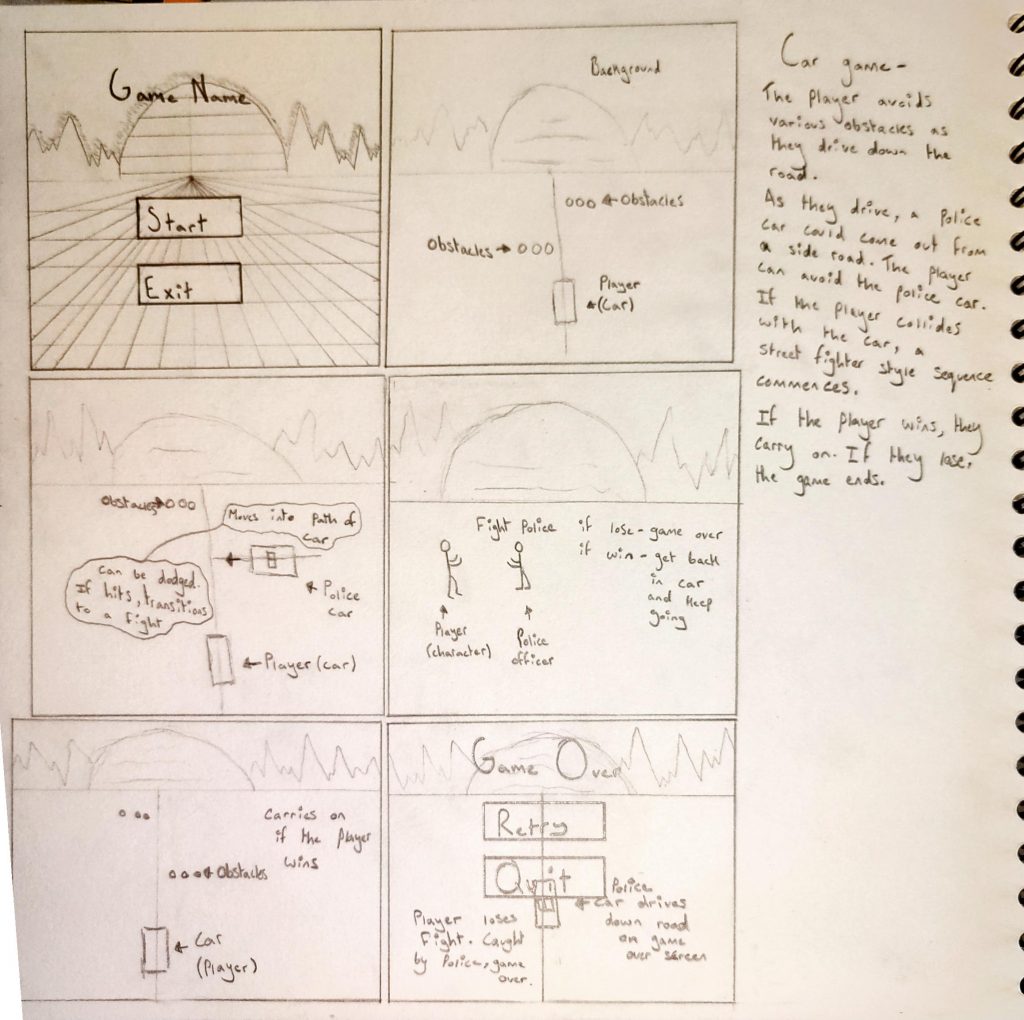 Game Name
Start
Exit
Background
Obstacles
Obstacles
Player
(Car)
Car game -
The Player avoids
various obstacles as
they drive down the
road.
As they drive, a Police
car could come out from
a side road. The Player
can avoid the Police car.
If the Player collides
with the car, a
street fighter style sequence
commences.
If the Player wins, they
carry on. If they lose,
the game ends.
Obstacles
Moves into Path of
car
can be dodged.
If hits, transitions
to a fight
Police
car
Player (car)
Fight Police
if lose - game over
if win - get back
in car
and keep
going
Player
(character)
Police
officer
Carries on
if the Player
wins
Obstacles
Car
(Player)
Game Over
Retry
Quit
Police
car drives
down road
on game
over screen
Player loses
Fight. Caught
by Police, game
over.